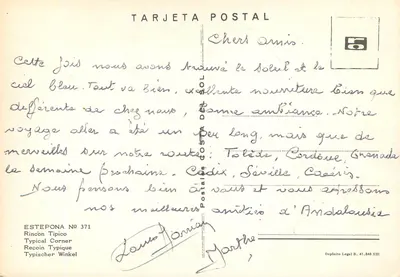 TARJETA POSTAL
Chers amis.
Cette fois nous avons trouvé le soleil et le
ciel bleu. Tout va bien, excellente nourriture bien que
différente de chez nous, bonne ambiance. Notre
voyage aller a été un peu long, mais que de
merveilles sur notre route: Tolède, Cordoue, Grenade
la semaine prochaine. Cadix, Séville, Cacérès.
Nous pensons bien à vous et vous adressons
nos meilleures amitiés d'Andalousie
Postales COSTA DEL SOL
ESTEPONA Nº 371
Rincón Típico
Typical Corner
Recoin Typique
Typischer Winkel
Marthe
Depósito Legal B.